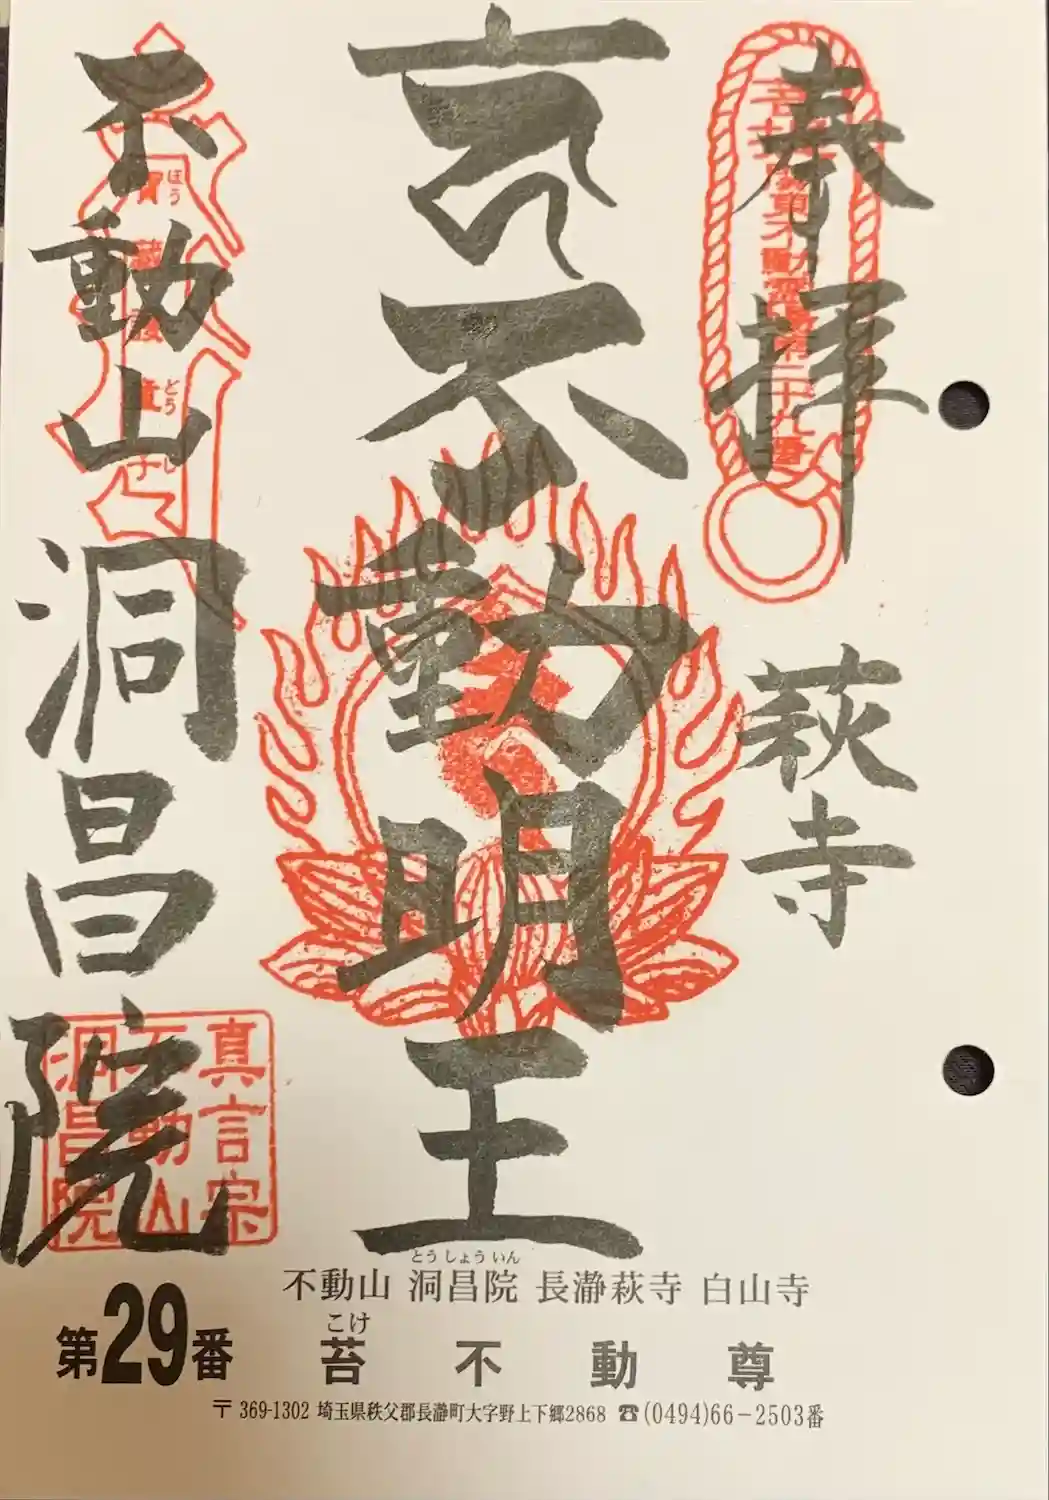 奉拝
萩寺
不動明王
不動山
洞昌院
関東不動霊場第二十九番
ほう
どう
じ
真言宗
不動山
洞昌院
とうしょういん
不動山 洞昌院 長瀞萩寺 白山寺
第29番
こけ
苔不動尊
〒369-1302 埼玉県秩父郡長瀞町大字野上下郷2868 ☎(0494)66-2503番